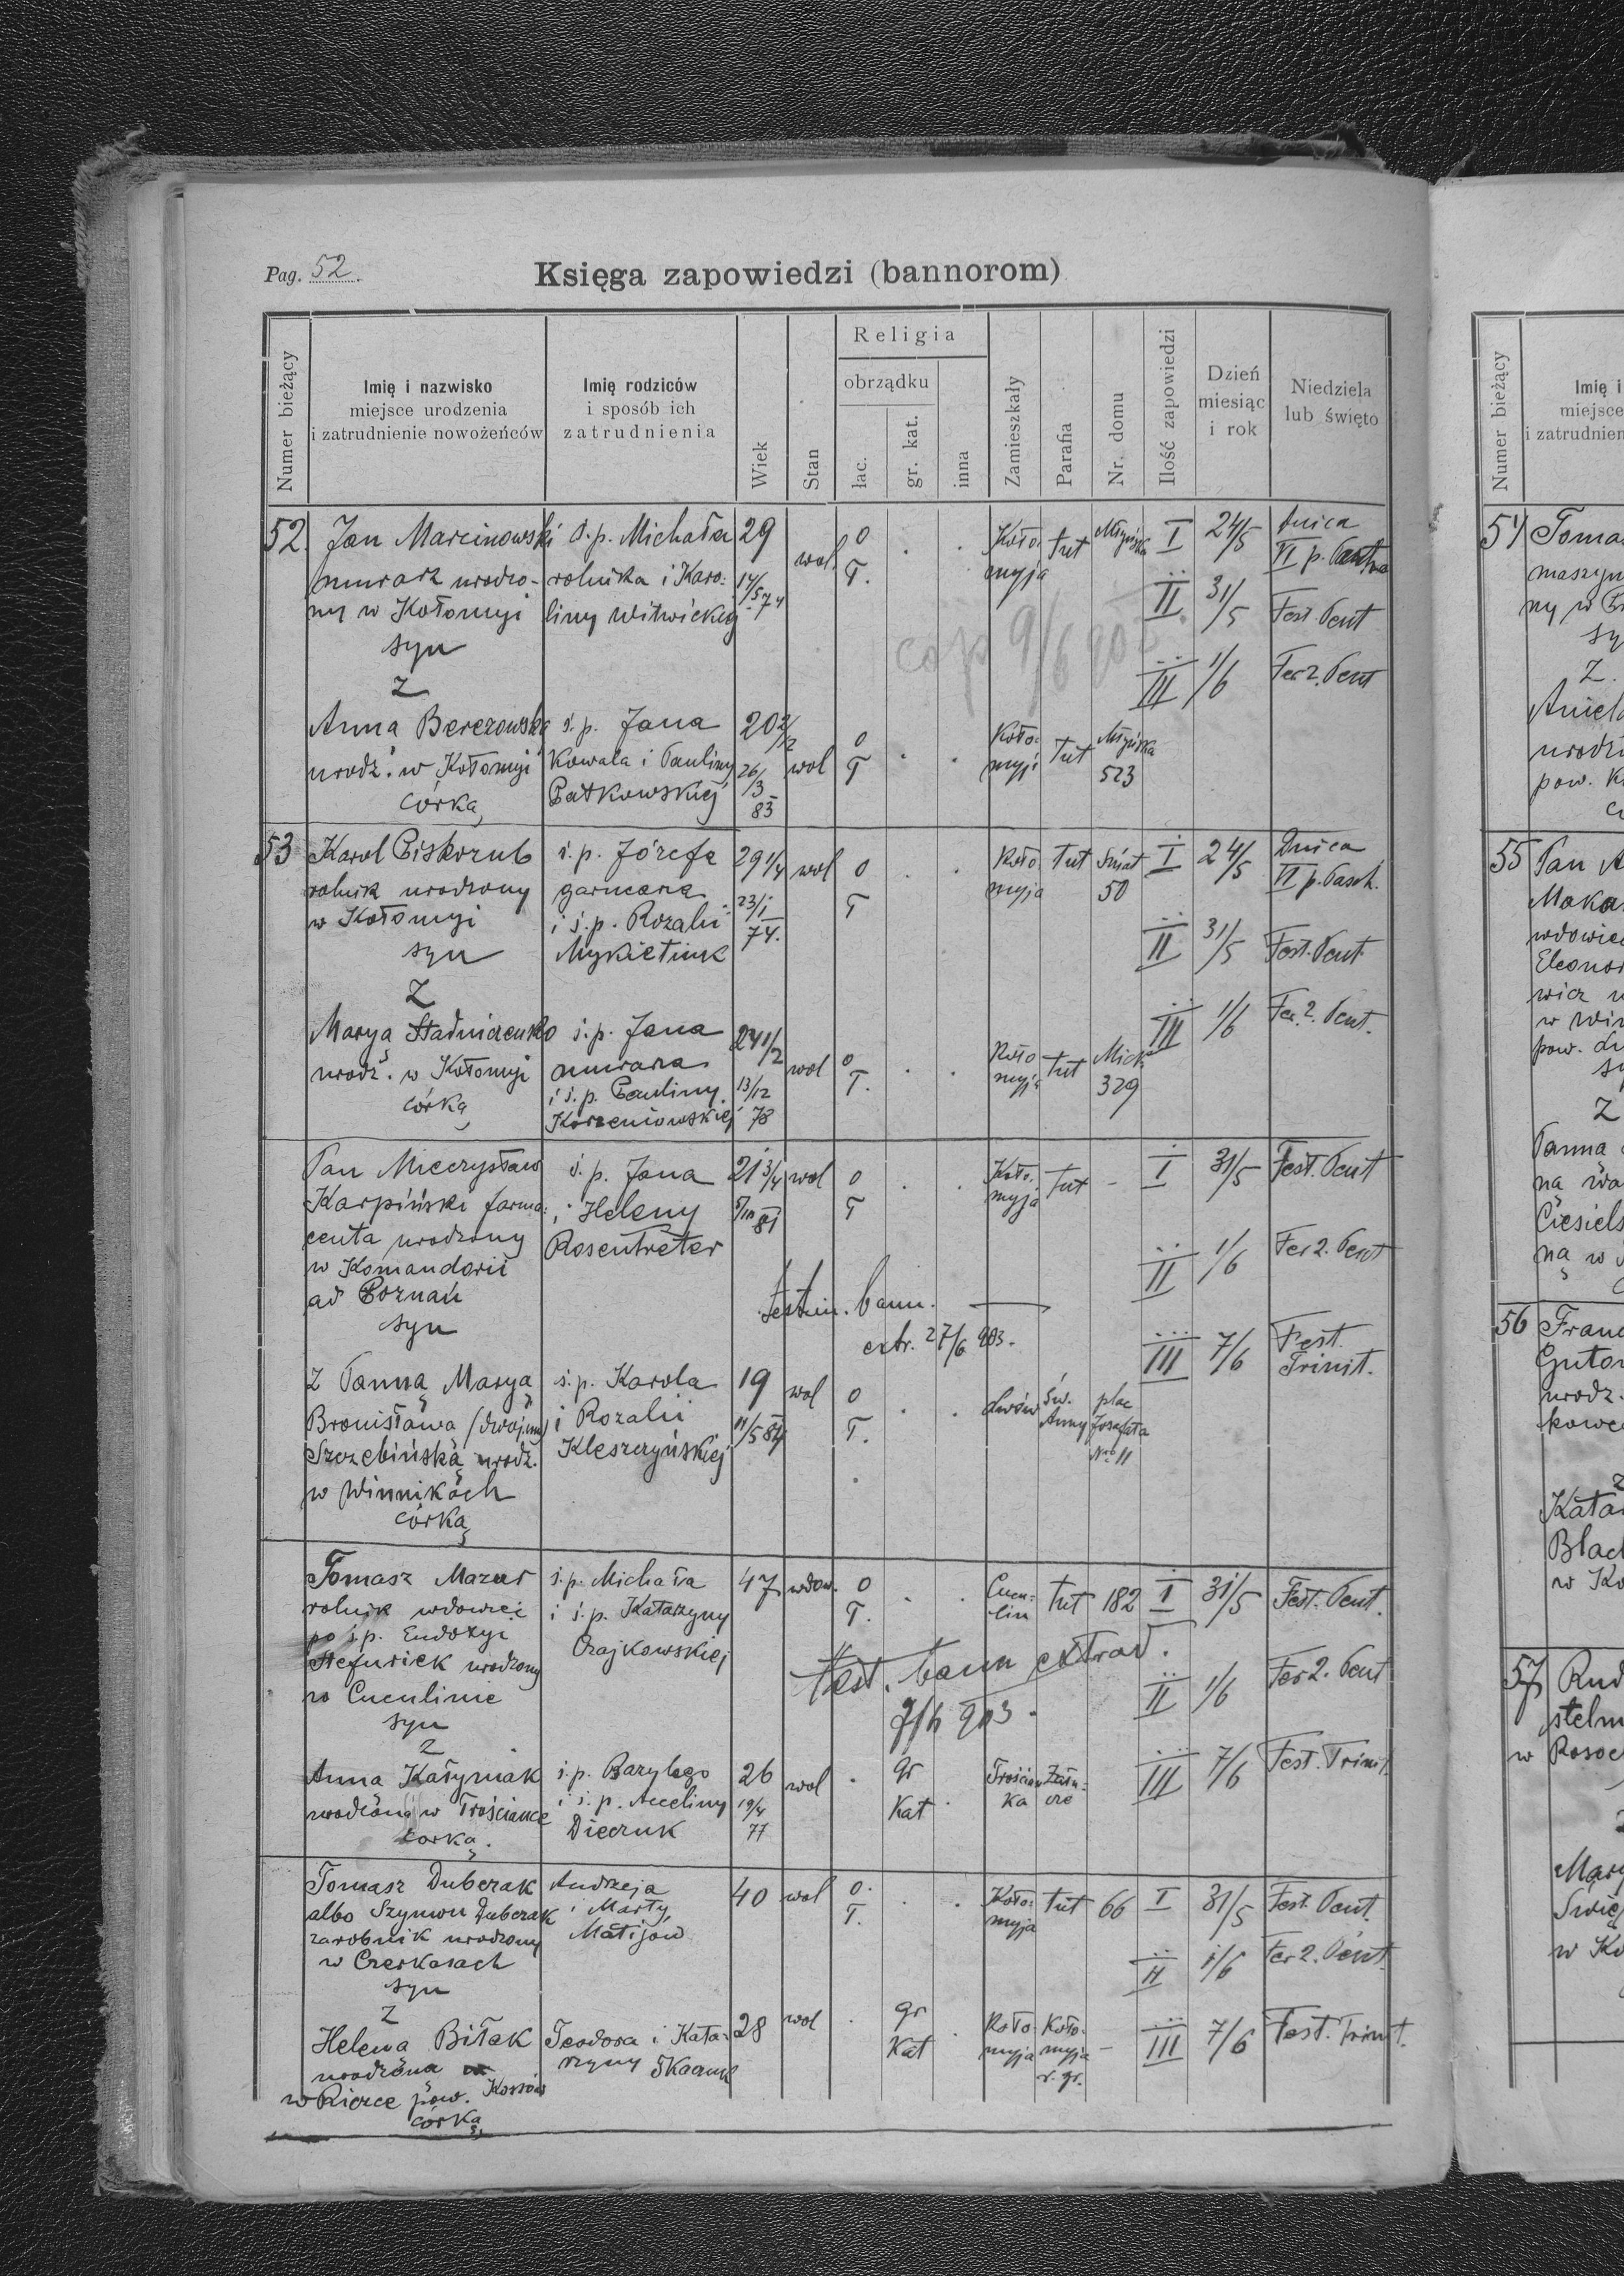 Pag. 52.
Księga zapowiedzi (bannorom)
Numer bieżący
Imię i nazwisko
miejsce urodzenia
i zatrudnienie nowożeńców
Imię rodziców
i sposób ich
zatrudnienia
Wiek
Stan
Religia
obrządku
łac.
gr. kat.
inna
Zamieszkały
Parafia
Nr. domu
Ilość zapowiedzi
Dzień
miesiąc
i rok
Niedziela
lub święto
52. Jan Marcinowski ś.p. Michała 29 wol. o Koło- tut I 24/5 Dnica
murarz urodzo- rolnika i Karo- 14/5 74 T. myja VI p.
ny w Kołomyi liny Witwickiej II 31/5 Fest. Pent
syn
cop 9/6
z III 1/6 Fer 2. Pent
Anna Berezowska ś.p. Jana 20 2/12 wol o Koło-
urodz. w Kołomyi kowala i Pauliny 26/3 83 T myja tut 523
córką Patkowskiej
53 Karol Piskozub ś.p. Józefa 29 1/4 wol o Koło- tut Świat I 24/5 Dnica
rolnik urodzony garncarza 23/1 74. T myja 50 VI p. Pasch.
w Kołomyi i ś.p. Rozalii
syn Mykietiuk II 31/5 Fest. Pent.
z
Marya Stadniczenko ś.p. Jana 24 1/2 wol o Koło- tut Mick. III 1/6 Fer. 2. Pent.
urodz. w Kołomyi murarza 13/12 78 T. myja 329
córką i ś.p. Pauliny
Korzeniowskiej
Pan Mieczysław ś.p. Jana 21 3/4 wol o Koło- tut - I 31/5 Fest. Pent
Karpiński farma- i Heleny 81 T myja
ceuta urodzony Rosentreter
w Komandorii II 1/6 Fer 2. Pent
ad Poznań
syn
testim. bann.
extr. 27/6 903.
III 7/6 Fest. Trinit.
z Panną Maryą ś.p. Karola 19 wol o Lwów św. plac
Bronisławą i Rozalii 11/5 84 T. Anny Jozafata
Szczebińską urodz. Kleszczyńskiej No 11
w Winnikach
córką
Tomasz Mazur ś.p. Michała 47 wdow. o Cucu- tut 182 I 31/5 Fest. Pent.
rolnik wdowiec i ś.p. Katarzyny T. lin
po ś.p. Eudoxyi Czajkowskiej
Stefuriek urodzony
w Cuculinie II 1/6 Fer 2. Pent
syn
test. bann extrad.
903.
z
Anna Kałyniak ś.p. Bazylego 26 wol gr Trościan- III 7/6 Fest. Trinit.
urodzona w Trościance i ś.p. 19/4 77 Kat ka
córką. Dieczuk
Tomasz Dubczak Andrzeja 40 wol o. Koło- tut 66 I 31/5 Fest. Pent.
albo Szymon Dubczak i Marty T. myja
zarobnik urodzony Matijów
w Czerkasach II 1/6 Fer 2. Pent.
syn
z
Helena Biłek Teodora i Kata- 28 wol gr Koło- Koło- - III 7/6 Fest. Trinit.
urodzona rzyny Kat myja myja
w Rierce pow. Kossów r. gr.
córką
Numer bieżący
Imię i
miejsce
i zatrudnien
54 Toma
maszyn
ny w
sy
z.
Aniela
urodz
pow. K
55 Pan A
Maka
wdowiec
Eleonor
wicz u
w Win
pow.
z
Panna
na
Ciesiels
na w
56 Fran
Guto
urodz.
kowc
z
Kata
Blac
w Ko
57 Rud
stelm
w Rosoc
Mar
w Ko